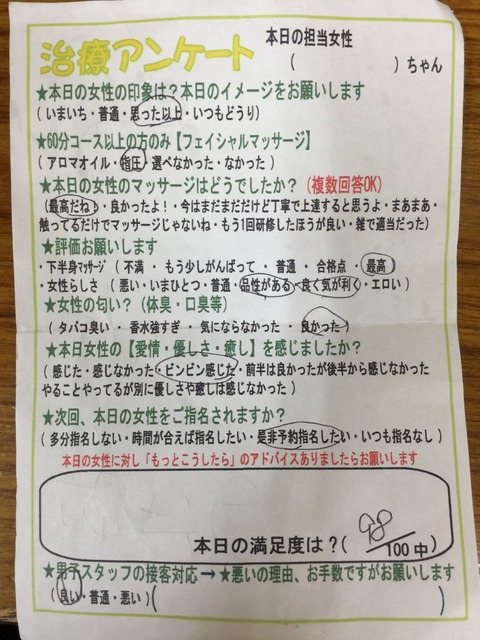 治療アンケート
本日の担当女性
( )ちゃん
★本日の女性の印象は？本日のイメージをお願いします
(いまいち・普通・思った以上・いつもどうり)
★60分コース以上の方のみ【フェイシャルマッサージ】
(アロマオイル・指圧・選べなかった・なかった)
★本日の女性のマッサージはどうでしたか？(複数回答OK)
(最高だね！・良かったよ！・今はまだまだだけど丁寧で上達すると思うよ・まあまあ・
触ってるだけでマッサージじゃないね・もう1回研修したほうが良い・雑で適当だった)
★評価お願いします
・下半身ﾏｯｻｰｼﾞ ( 不満 ・ もう少しがんばって ・ 普通 ・ 合格点 ・ 最高 )
・女性らしさ ( 悪い・いまひとつ・普通・品性がある・良く気が利く・エロい )
★女性の匂い？ (体臭・口臭等)
( タバコ臭い ・ 香水強すぎ ・ 気にならなかった ・ 良かった )
★本日女性の【愛情・優しさ・癒し】を感じましたか？
( 感じた・感じなかった・ビンビン感じた・前半は良かったが後半から感じなかった
やることやってるが別に優しさや癒しは感じなかった )
★次回、本日の女性をご指名されますか？
( 多分指名しない・時間が合えば指名したい・是非予約指名したい・いつも指名なし )
本日の女性に対し「もっとこうしたら」のアドバイスありましたらお願いします
本日の満足度は？( 98/100中)
★男子スタッフの接客対応 → ★悪いの理由、お手数ですがお願いします
(良い・普通・悪い) ( )